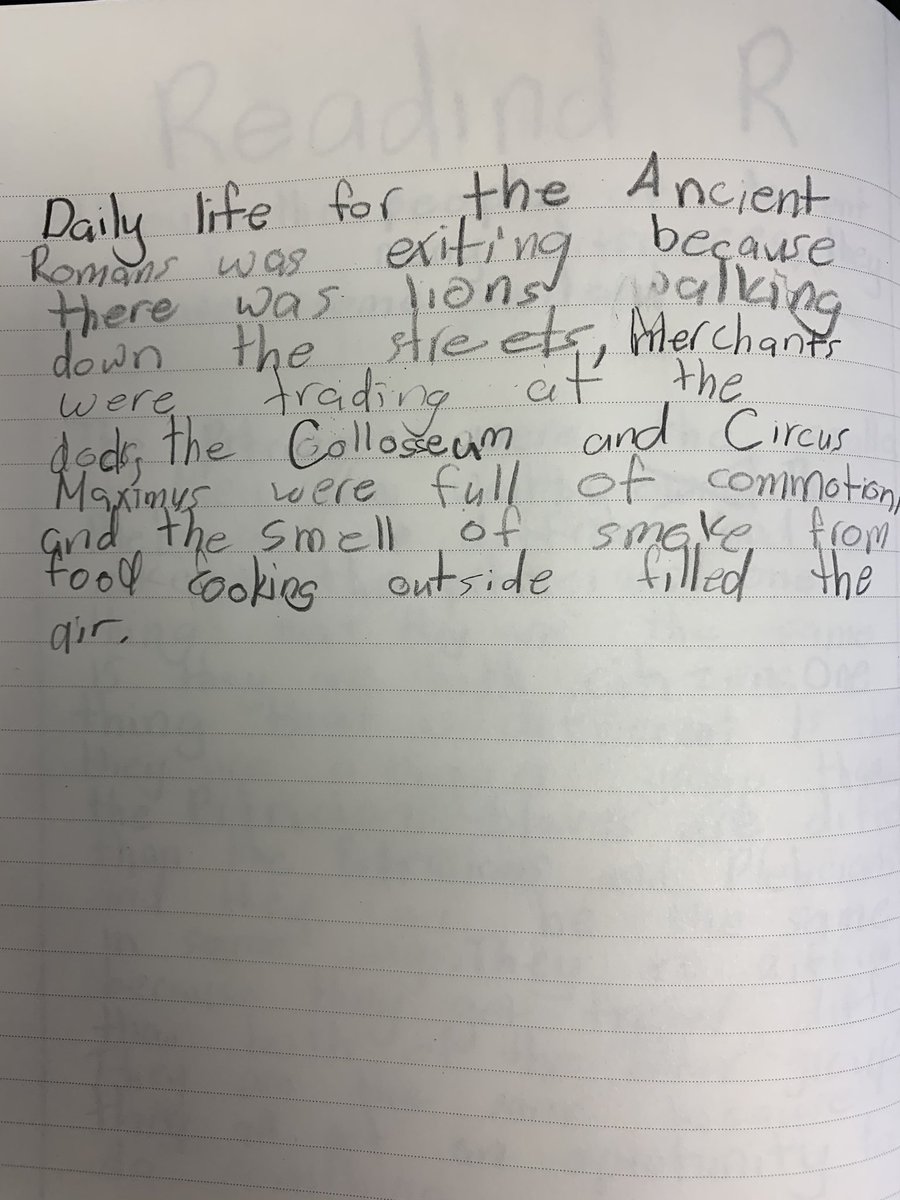 Readind R
Daily life for the Ancient
Romans was exiting because
there was lions walking
down the streets, Merchants
were trading at the
docks, the Collosseum and Circus
Maximus were full of commotion,
and the smell of smoke from
food cooking outside filled the
air.